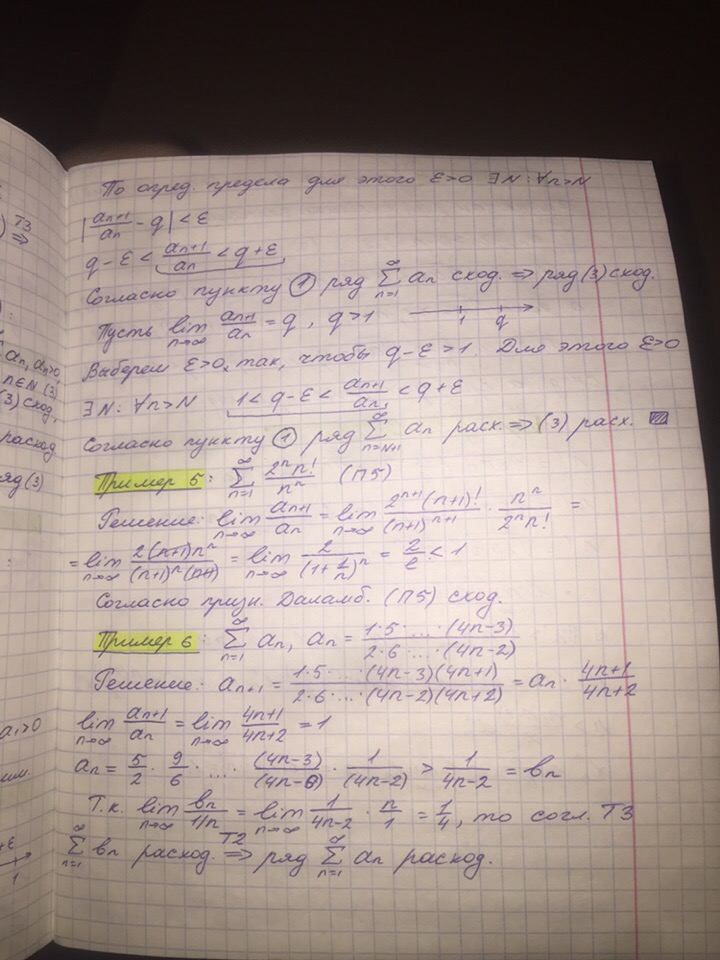 По опред. предела для этого ε>0 ∃N: ∀n>N
|aₙ₊₁/aₙ - q| < ε
q-ε < aₙ₊₁/aₙ < q+ε
Согласно пункту ① ряд ∑ₙ₌₁^∞ aₙ сход. ⇒ ряд (3) сход.
Пусть lim_{n→∞} aₙ₊₁/aₙ = q, q>1 1 q
Выберем ε>0 так, чтобы q-ε>1. Для этого ε>0
∃N: ∀n>N 1 < q-ε < aₙ₊₁/aₙ < q+ε
Согласно пункту ① ряд ∑_{n=N+1}^∞ aₙ расх. ⇒ (3) расх.
Пример 5: ∑ₙ₌₁^∞ 2ⁿn!/nⁿ (П5)
Решение: lim_{n→∞} aₙ₊₁/aₙ = lim_{n→∞} 2ⁿ⁺¹(n+1)!/(n+1)ⁿ⁺¹ · nⁿ/2ⁿn! =
= lim_{n→∞} 2(n+1)nⁿ/(n+1)ⁿ(n+1) = lim_{n→∞} 2/(1+1/n)ⁿ = 2/e < 1
Согласно призн. Даламб. (П5) сход.
Пример 6: ∑ₙ₌₁^∞ aₙ, aₙ = 1·5·...·(4n-3)/2·6·...·(4n-2)
Решение: aₙ₊₁ = 1·5·...·(4n-3)(4n+1)/2·6·...·(4n-2)(4n+2) = aₙ · 4n+1/4n+2
lim_{n→∞} aₙ₊₁/aₙ = lim_{n→∞} 4n+1/4n+2 = 1
aₙ = 5/2 · 9/6 · ... · (4n-3)/(4n-6) · 1/(4n-2) > 1/4n-2 = bₙ
Т.к. lim_{n→∞} bₙ/1/n = lim_{n→∞} 1/4n-2 · n/1 = 1/4, то согл. Т3
∑ₙ₌₁^∞ bₙ расход. ⇒ Т2 ряд ∑ₙ₌₁^∞ aₙ расход.
Т3
⇒
aₙ, aₙ>0
n∈N (3)
(3) сход,
расход
ряд (3)